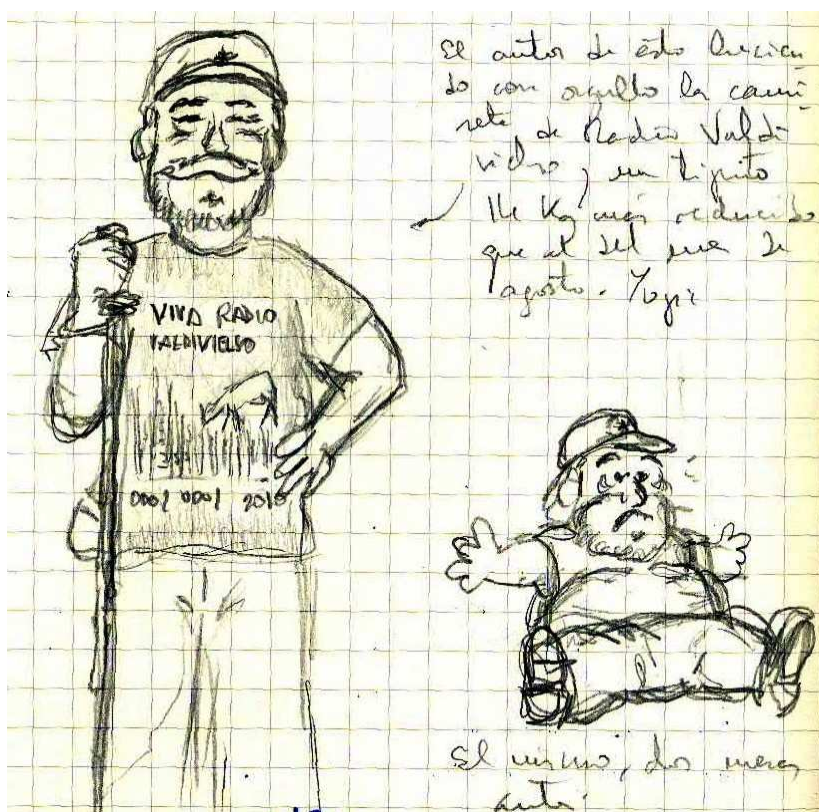 El autor de ésto lucien-
do con orgullo la cami-
seta de Radio Valdi-
vielso, un tipito
más reducido
que el del mes de
agosto. Yogi
VIVA RADIO
VALDIVIELSO
2010
El mismo, dos meses
antes